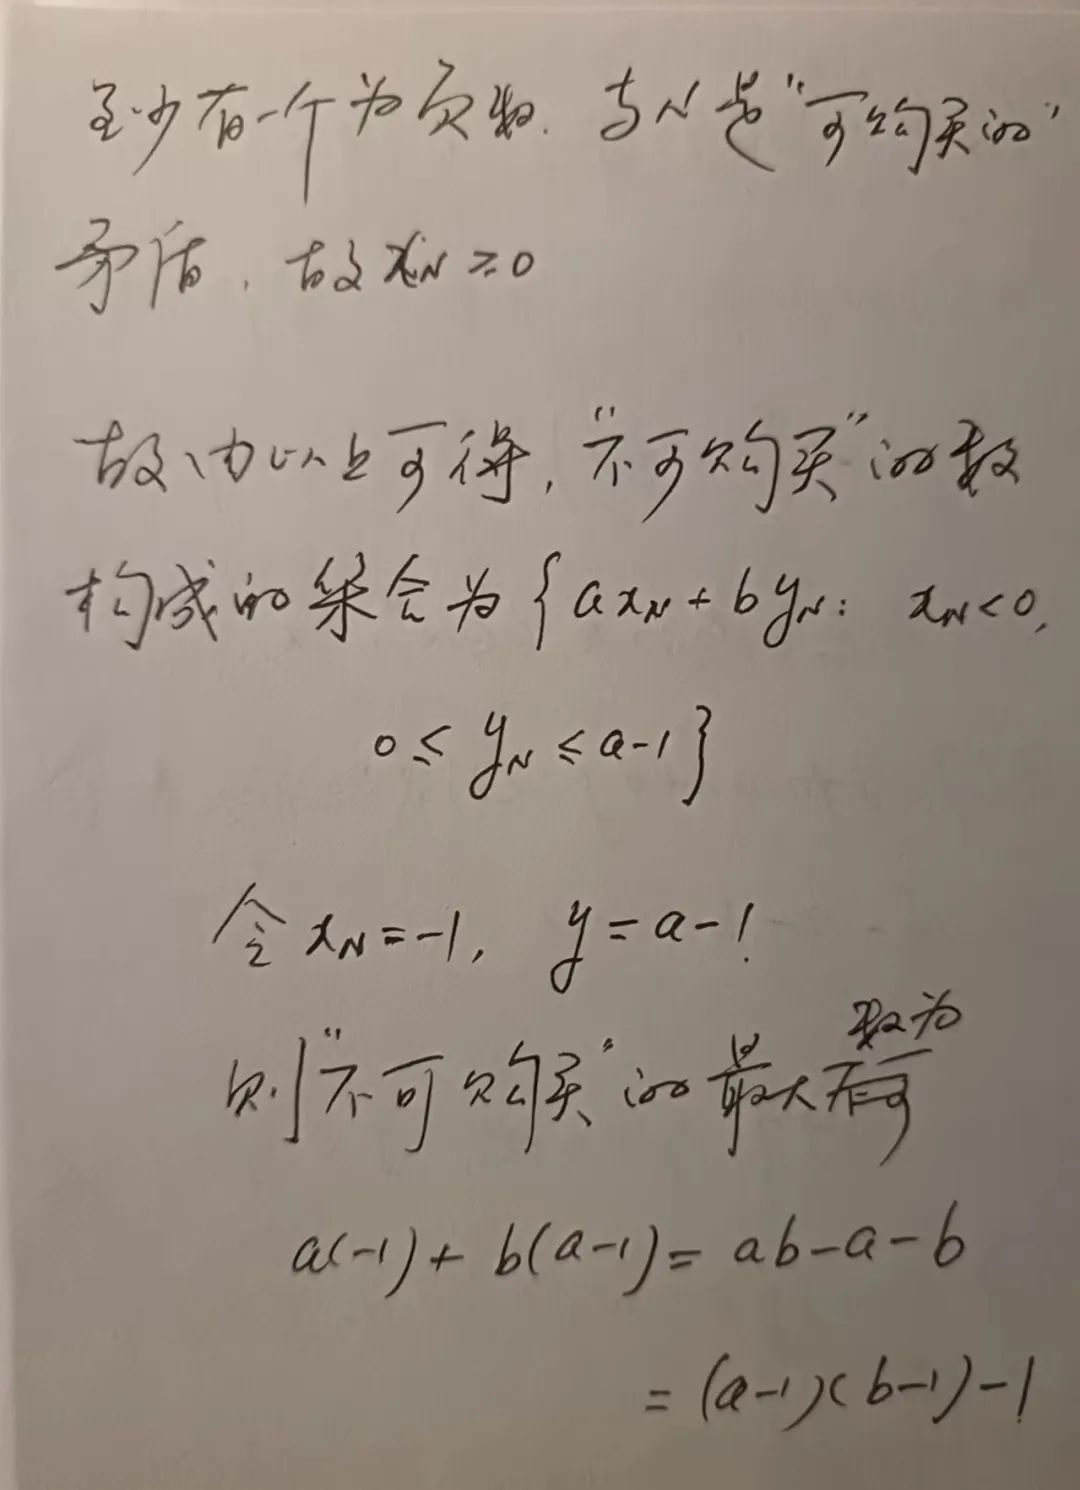 至少有一个为负数. 与N是"可购买的"
矛盾. 故 x_N ≥ 0
故、由以上可得, "不可购买"的数
构成的集合为 { a x_N + b y_N : x_N < 0,
0 ≤ y_N ≤ a-1 }
令 x_N = -1, y = a-1
则"不可购买"的最大数为
a(-1) + b(a-1) = ab - a - b
= (a-1)(b-1) - 1